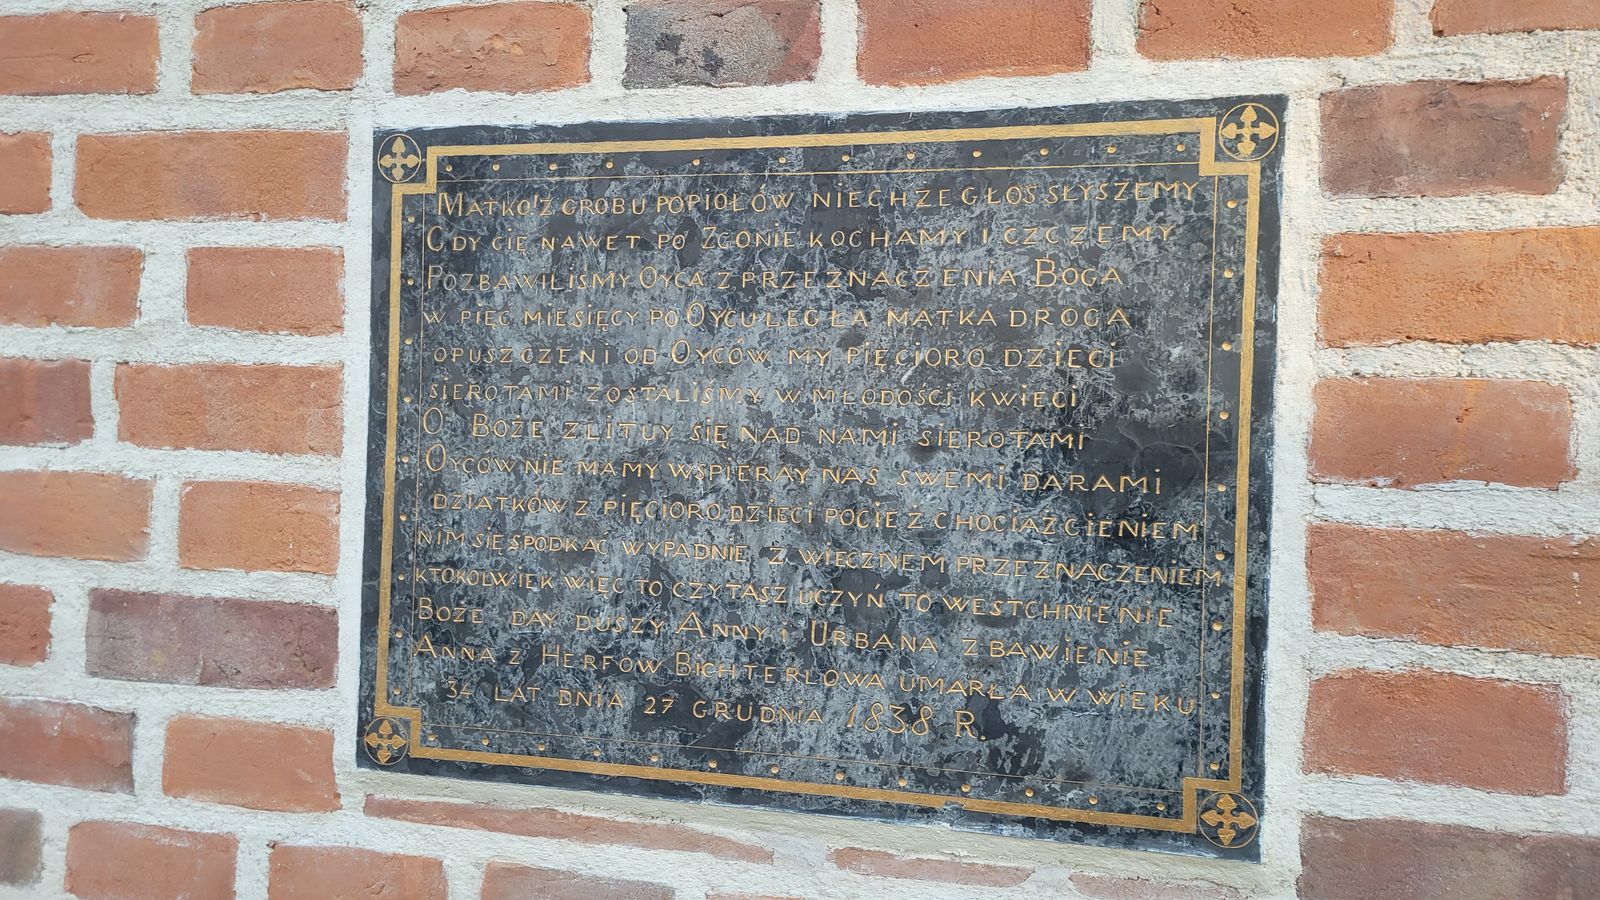 MATKO! Z GROBU POPIOŁÓW NIECH ŻE GŁOS SŁYSZEMY
GDY CIĘ NAWET PO ZGONIE KOCHAMY I CZCZEMY
POZBAWILISMY OYCA Z PRZEZNACZENIA BOGA
W PIĘĆ MIESIĘCY PO OYCU LEGŁA MATKA DROGA
OPUSZCZENI OD OYCÓW MY PIĘCIORO DZIECI
SIEROTAMI ZOSTALIŚMY W MŁODOŚCI KWIECI
O BOŻE ZLITUY SIĘ NAD NAMI SIEROTAMI
OYCÓW NIE MAMY WSPIERAY NAS SWEMI DARAMI
DZIATKÓW Z PIĘCIORO DZIECI POCIEŻ CHOCIAŻ CIENIEM
NIM SIĘ SPODKAĆ WYPADNIE Z WIECZNEM PRZEZNACZENIEM
KTOKOLWIEK WIĘC TO CZYTASZ UCZYŃ TO WESTCHNIENIE
BOŻE DAY DUSZY ANNY I URBANA ZBAWIENIE
ANNA Z HERFOW BICHTERLOWA UMARŁA W WIEKU
34 LAT DNIA 27 GRUDNIA 1838 R.